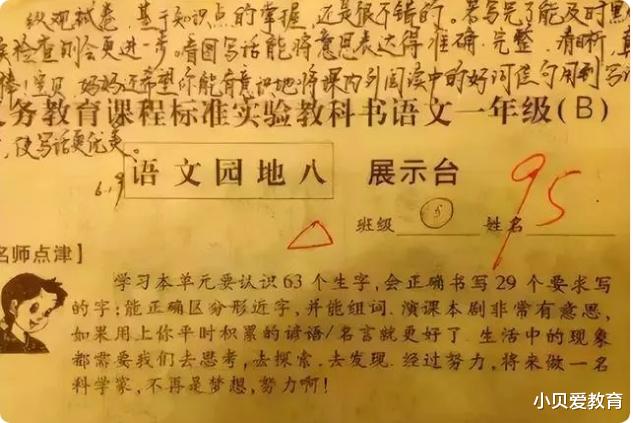 纵观试卷，基于知识点的掌握，还是很不错的。若写完了能及时
检查则会更进一步。看图写话能将意思表达得准确、完整、清晰，真
棒！宝贝，妈妈还希望你能有意识地将课内外阅读中的好词佳句用到写
务教育课程标准实验教科书语文一年级(B)
，使写话更优美。
6.19
语文园地八 展示台
95
班级 5 姓名
名师点津】
学习本单元要认识63个生字，会正确书写29个要求写
的字；能正确区分形近字，并能组词．演课本剧非常有意思，
如果用上你平时积累的谚语/名言就更好了．生活中的现象
都需要我们去思考，去探索．去发现．经过努力，将来做一名
科学家，不再是梦想，努力啊！
小贝爱教育